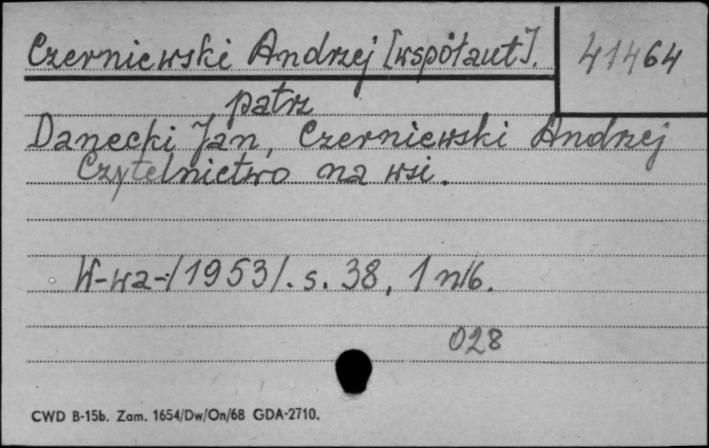 Czerniewski Andrzej [współaut].
41464
patrz
Danecki Jan, Czerniewski Andrzej
Czytelnictwo na wsi.
W-wa-/1953/. s. 38, 1 nlb.
028
CWD B-15b. Zam. 1654/Dw/On/68 GDA-2710.